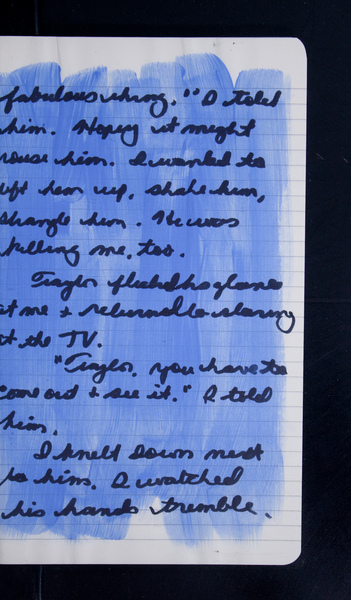 fabulous thing." I told
him. Hoping it might
rouse him. I wanted to
lift him up, shake him,
strangle him. He was
killing me, too.
Taylor flicked his glance
at me + returned to staring
at the TV.
"Taylor, you have to
come out + see it." I told
him.
I knelt down next
to him. I watched
his hands tremble.